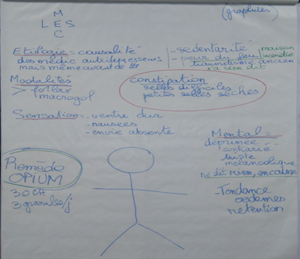 M
LES
C
(graphites)
Etiologie = causalité
des médic antidépresseurs
mais même avant de
- sédentarité
- peur du
- traumatisme ancien
Modalités
> forlax
macrogol
constipation
selles difficiles
petites selles sèches
Sensation : ventre dur
- nausées
- envie absente
Mental
déprimée
triste
mélancolique
- Tendance
œdèmes
rétention
Remède
OPIUM
30 CH
3 granules/j